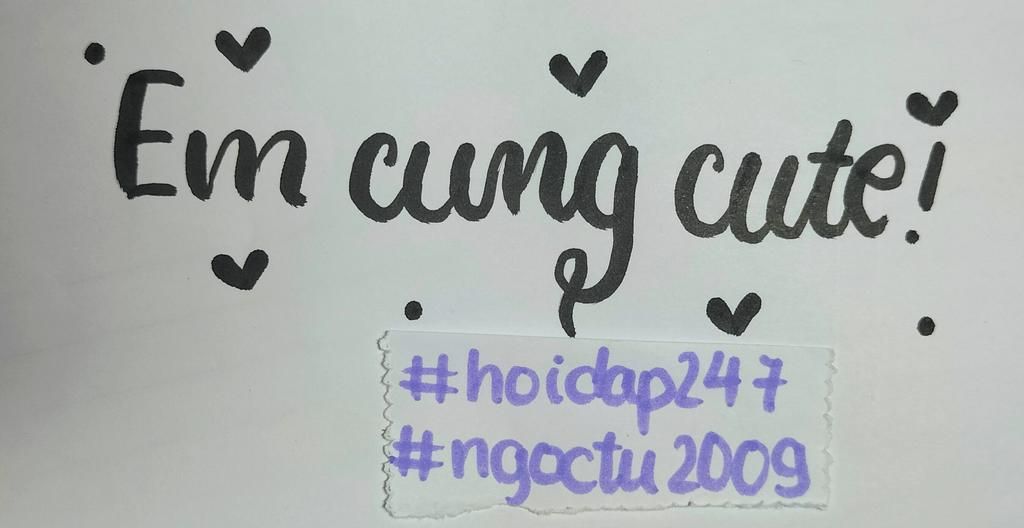 Em cung cute!
#hoidap247
#ngoctu2009